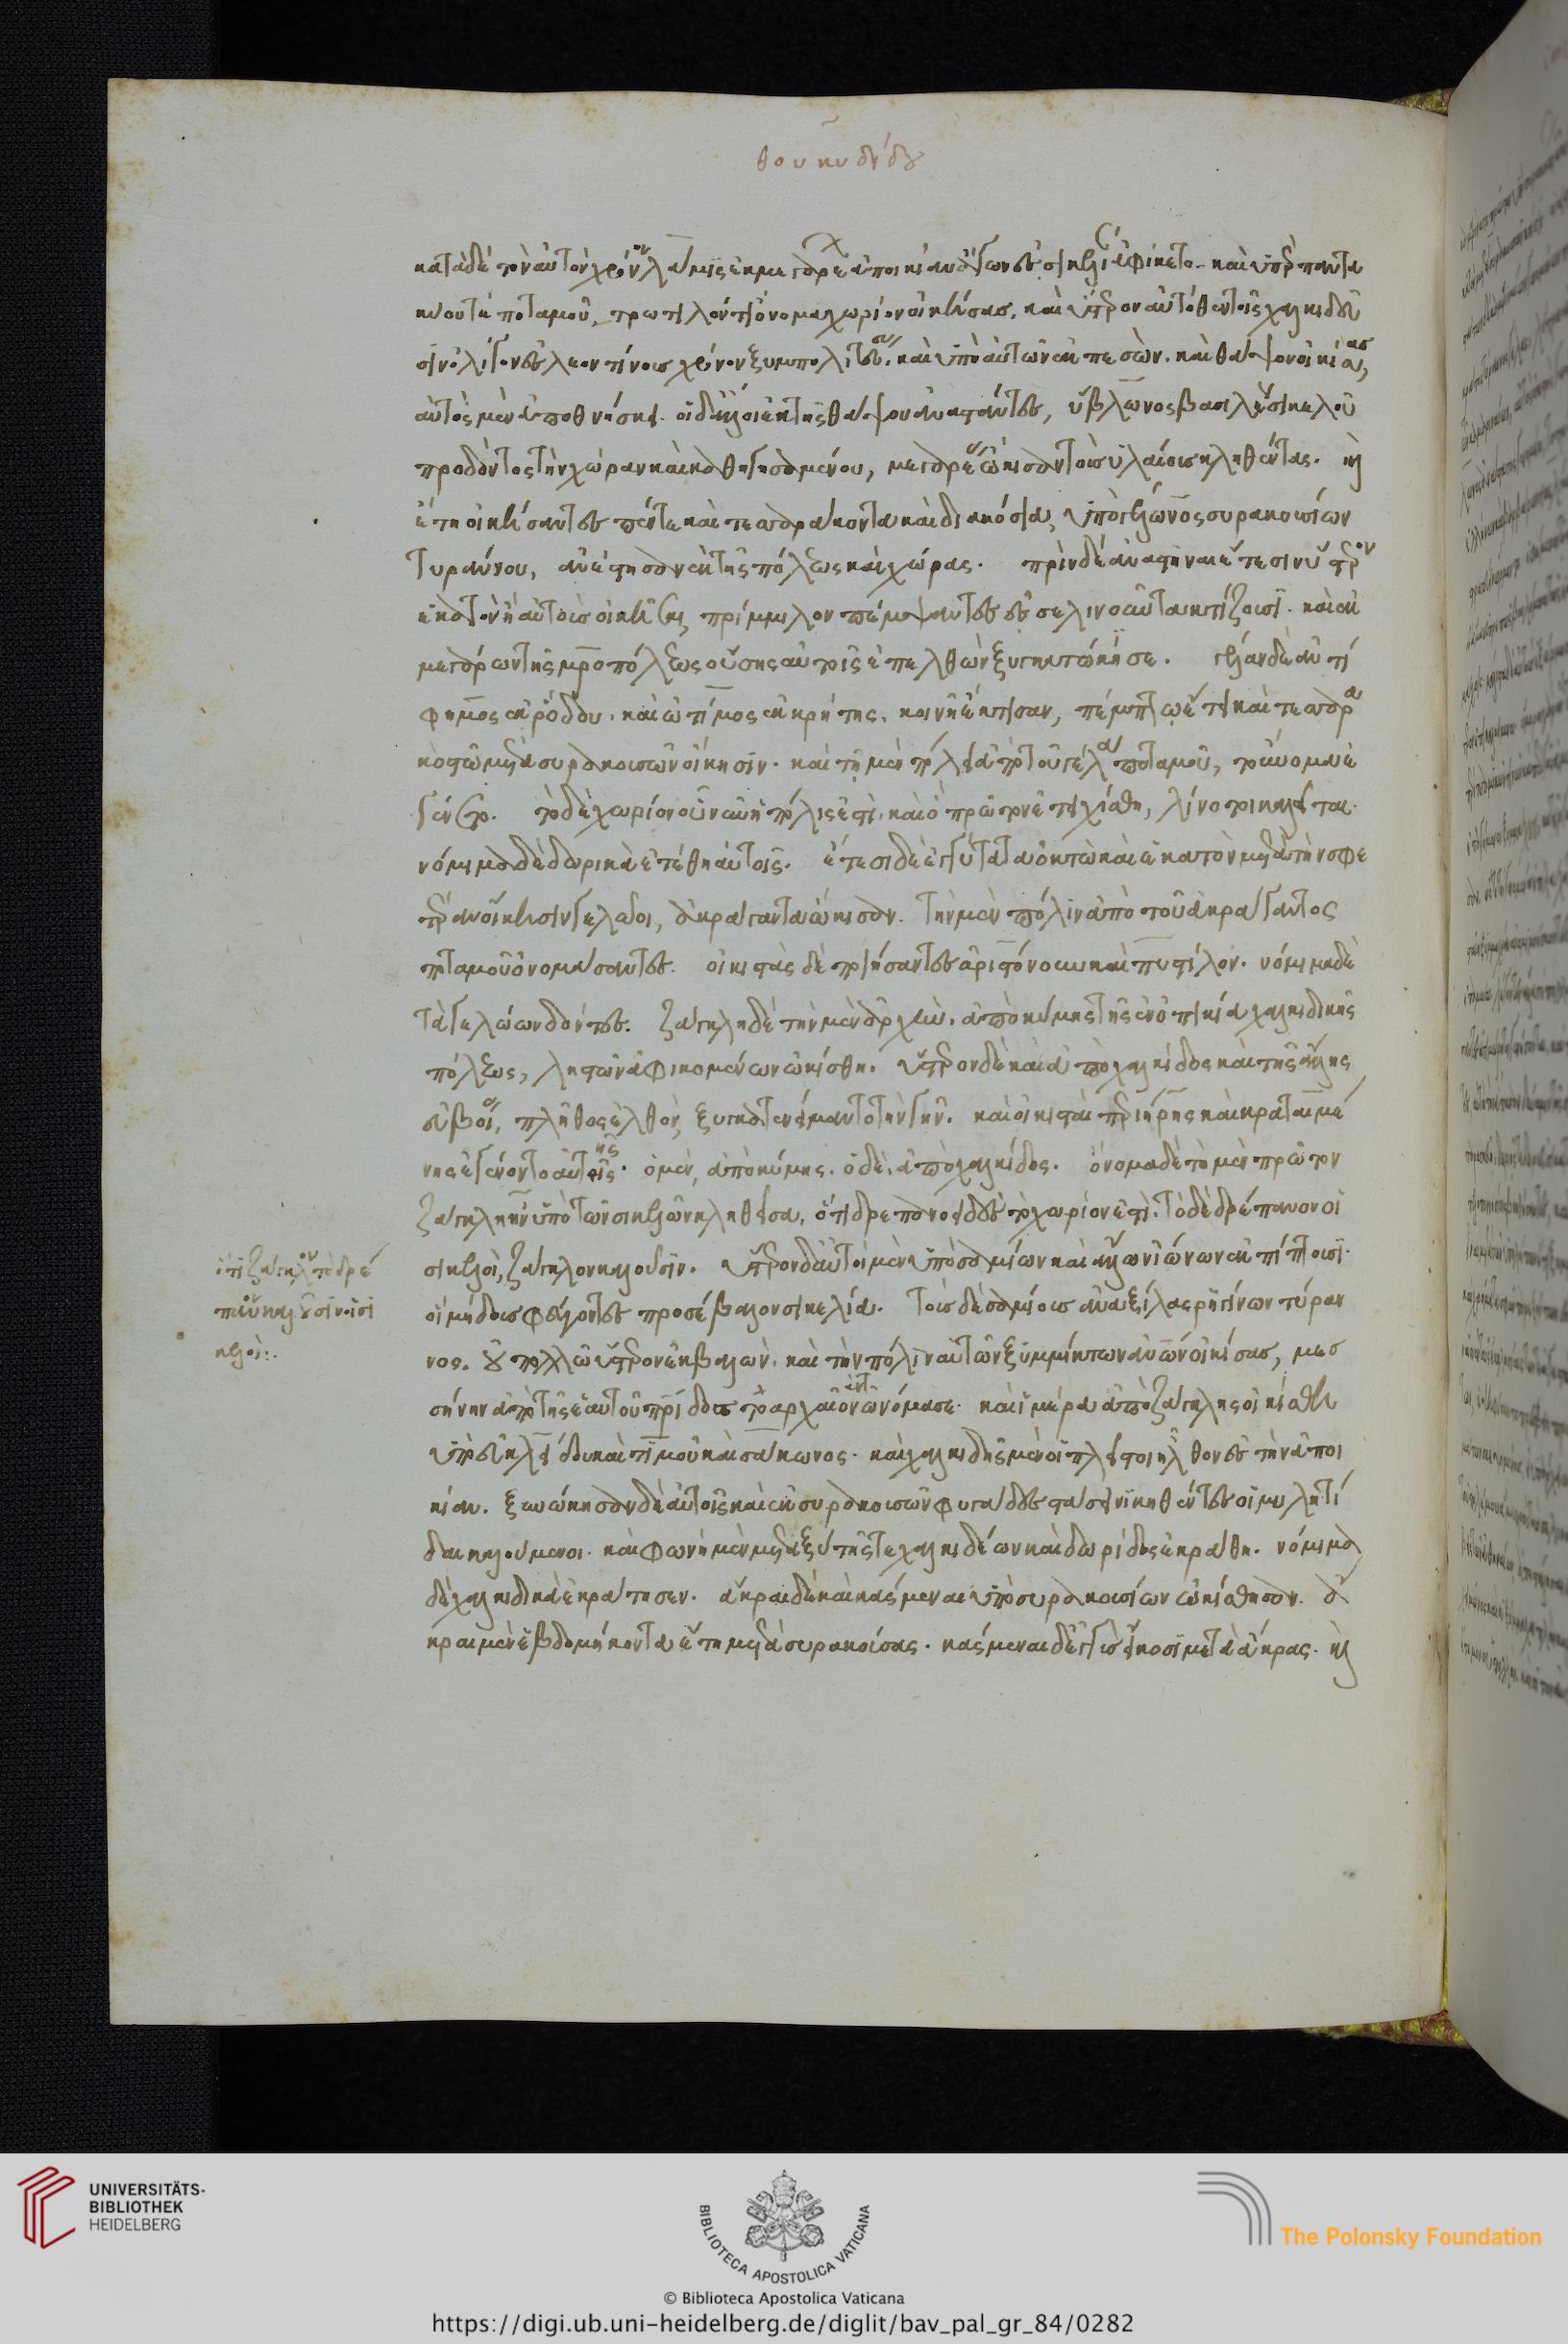 θουκυδίδου
κατὰ δὲ τὸν αὐτὸν χρόνον λάμις ἐκ μεγάρων ἀποικίαν ἄγων ἐς σικελίαν ἀφίκετο. καὶ ὑπὲρ παντα
κύου τὲ ποταμοῦ, τρωτιλόν τι ὄνομα χωρίον οἰκίσας. καὶ ὕστερον αὐτόθεν τοῖς χαλκιδεῦ
σιν ὀλίγον ἐς λεοντίνους χρόνον ξυμπολιτεύσας. καὶ ὑπὸ αὐτῶν ἐκπεσὼν. καὶ θάψον οἰκίσας,
αὐτὸς μὲν ἀποθνήσκει. οἱ δ' ἄλλοι ἐκ τῆς θάψου ἀναστάντες, ὕβλωνος βασιλέως σικελοῦ
προδόντος τὴν χώραν καὶ καθηγησαμένου, μεγαρέας ᾤκισαν τοὺς ὑβλαίους κληθέντας. καὶ
ἔτη οἰκήσαντες πέντε καὶ τεσσαράκοντα καὶ διακόσια, ὑπὸ γέλωνος συρακουσίων
τυράννου, ἀνέστησαν ἐκ τῆς πόλεως καὶ χώρας. πρὶν δὲ ἀναστῆναι ἔτεσιν ὕστερον
ἑκατὸν ἢ αὐτοὺς οἰκῆσαι, πάμμιλον πέμψαντες ἐς σελινοῦντα κτίζουσι. καὶ ἐκ
μεγάρων τῆς μητροπόλεως οὔσης αὐτοῖς ἐπελθὼν ξυγκατώκησε. γέλαν δὲ ἀντί
φημος ἐκ ῥόδου. καὶ ἔντιμος ἐκ κρήτης. κοινῇ ἔκτισαν, πέμπτῳ ἔτει καὶ τεσσαρα
κοστῷ μετὰ συρακουσῶν οἴκησιν. καὶ τῇ μὲν πόλει ἀπὸ τοῦ γέλα ποταμοῦ, τοὔνομα ἐ
γένετο. τὸ δὲ χωρίον οὗ νῦν ἡ πόλις ἐστὶ, καὶ ὃ πρῶτον ἐτειχίσθη, λίνδιοι καλεῖται.
νόμιμα δὲ δωρικὰ ἐτέθη αὐτοῖς. ἔτεσι δὲ ἐγγύτατα ὀκτὼ καὶ ἑκατὸν μετὰ τὴν σφε
τέραν οἴκισιν γελῷοι, ἀκράγαντα ᾤκισαν. τὴν μὲν πόλιν ἀπὸ τοῦ ἀκράγαντος
ποταμοῦ ὀνομάσαντες. οἰκιστὰς δὲ ποιήσαντες ἀριστόνουν καὶ πυστίλον. νόμιμα δὲ
τὰ γελώων δόντες. ζάγκλη δὲ τὴν μὲν ἀρχὴν. ἀπὸ κύμης τῆς ἐν ὀπικίᾳ χαλκιδικῆς
πόλεως, λῃστῶν ἀφικομένων ᾠκίσθη. ὕστερον δὲ καὶ ἀπὸ χαλκίδος καὶ τῆς ἄλλης
εὐβοίας, πλῆθος ἐλθὸν, ξυγκατενείμαντο τὴν γῆν. καὶ οἰκισταὶ περιήρης καὶ κραταιμέ
νης ἐγένοντο αὐτῆς. ὁ μὲν, ἀπὸ κύμης. ὁ δὲ, ἀπὸ χαλκίδος. ὄνομα δὲ τὸ μὲν πρῶτον
ζάγκλη ἦν ὑπὸ τῶν σικελῶν κληθεῖσα, ὅτι δρεπανοειδὲς τὸ χωρίον ἐστὶ. τὸ δὲ δρέπανον οἱ
σικελοὶ, ζάγκλον καλοῦσιν. ὕστερον δ' αὐτοὶ μὲν ὑπὸ σαμίων καὶ ἄλλων ἰώνων ἐκπίπτουσι.
οἳ μήδους φεύγοντες προσέβαλον σικελίᾳ. τοὺς δὲ σαμίους ἀναξίλας ῥηγίνων τύραν
νος. οὐ πολλῷ ὕστερον ἐκβαλὼν. καὶ τὴν πόλιν αὐτῶν ξυμμίκτων ἀνθρώπων οἰκίσας, μεσ
σήνην ἀπὸ τῆς ἑαυτοῦ πατρίδος τὸ ἀρχαῖον ἀντωνόμασε. καὶ ἱμέρα ἀπὸ ζάγκλης ᾠκίσθη
ὑπὸ εὐκλείδου καὶ σίμου καὶ σάκωνος. καὶ χαλκιδῆς μὲν οἱ πλεῖστοι ἦλθον ἐς τὴν ἀποι
κίαν. ξυνῴκησαν δὲ αὐτοῖς καὶ ἐκ συρακουσῶν φυγάδες στάσει νικηθέντες οἱ μυλητί
δαι καλούμενοι. καὶ φωνὴ μὲν μεταξὺ τῆς τε χαλκιδέων καὶ δωρίδος ἐκράθη. νόμιμα
δὲ χαλκιδικὰ ἐκράτησεν. ἄκραι δὲ καὶ κασμέναι ὑπὸ συρακουσίων ᾠκίσθησαν. ἄ
κραι μὲν ἑβδομήκοντα ἔτη μετὰ συρακούσας. κασμέναι δὲ ἐγγὺς εἴκοσι μετὰ ἄκρας. καὶ
ὅτι ζάγκλον τὸ δρέ
πανον καλοῦσιν οἱ σι
κελοί:.
UNIVERSITÄTS-
BIBLIOTHEK
HEIDELBERG
BIBLIOTECA APOSTOLICA VATICANA
The Polonsky Foundation
© Biblioteca Apostolica Vaticana
https://digi.ub.uni-heidelberg.de/diglit/bav_pal_gr_84/0282